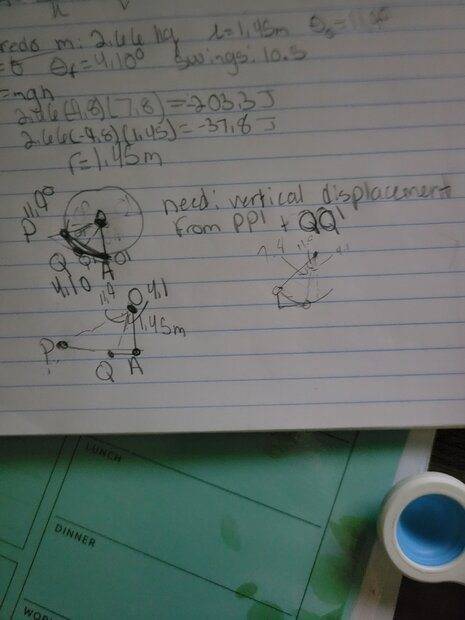 redo m: 2.66 kg l = 1.45m θs =
= 0 θf = 4.10° swings: 10.5
= mgh
2.66(-9.8)(7.8) = -203.3 J
2.66(-9.8)(1.45) = -37.8 J
r = 1.45m
11.9°
P
O
Q
A
4.10
need: vertical displacement
from PP' + QQ'
O 4.1
1.45m
P
Q A
LUNCH
DINNER